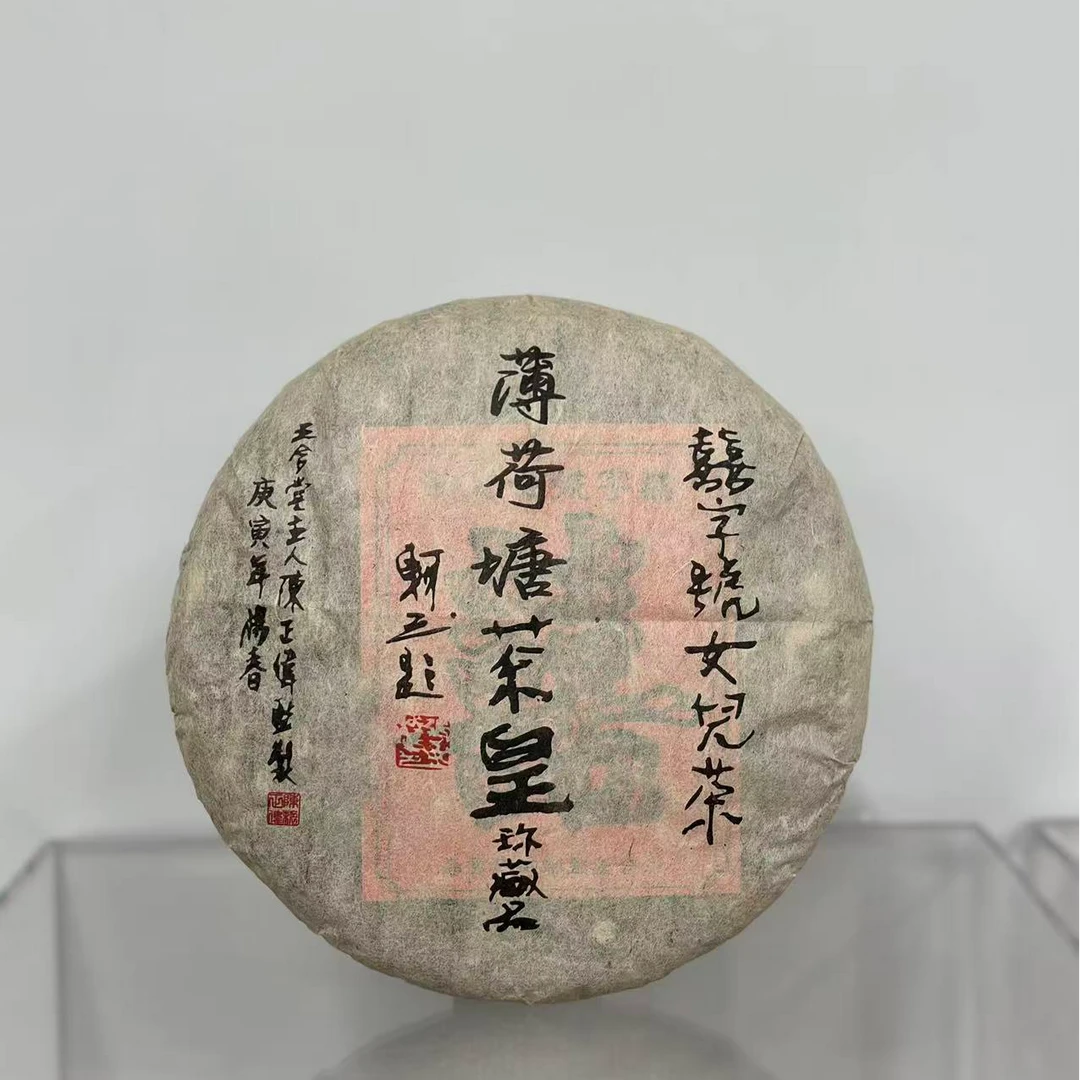 囍字號女兒茶
薄荷塘茶皇珍藏品
題
堂主人陳正偉監製
庚寅年陽春